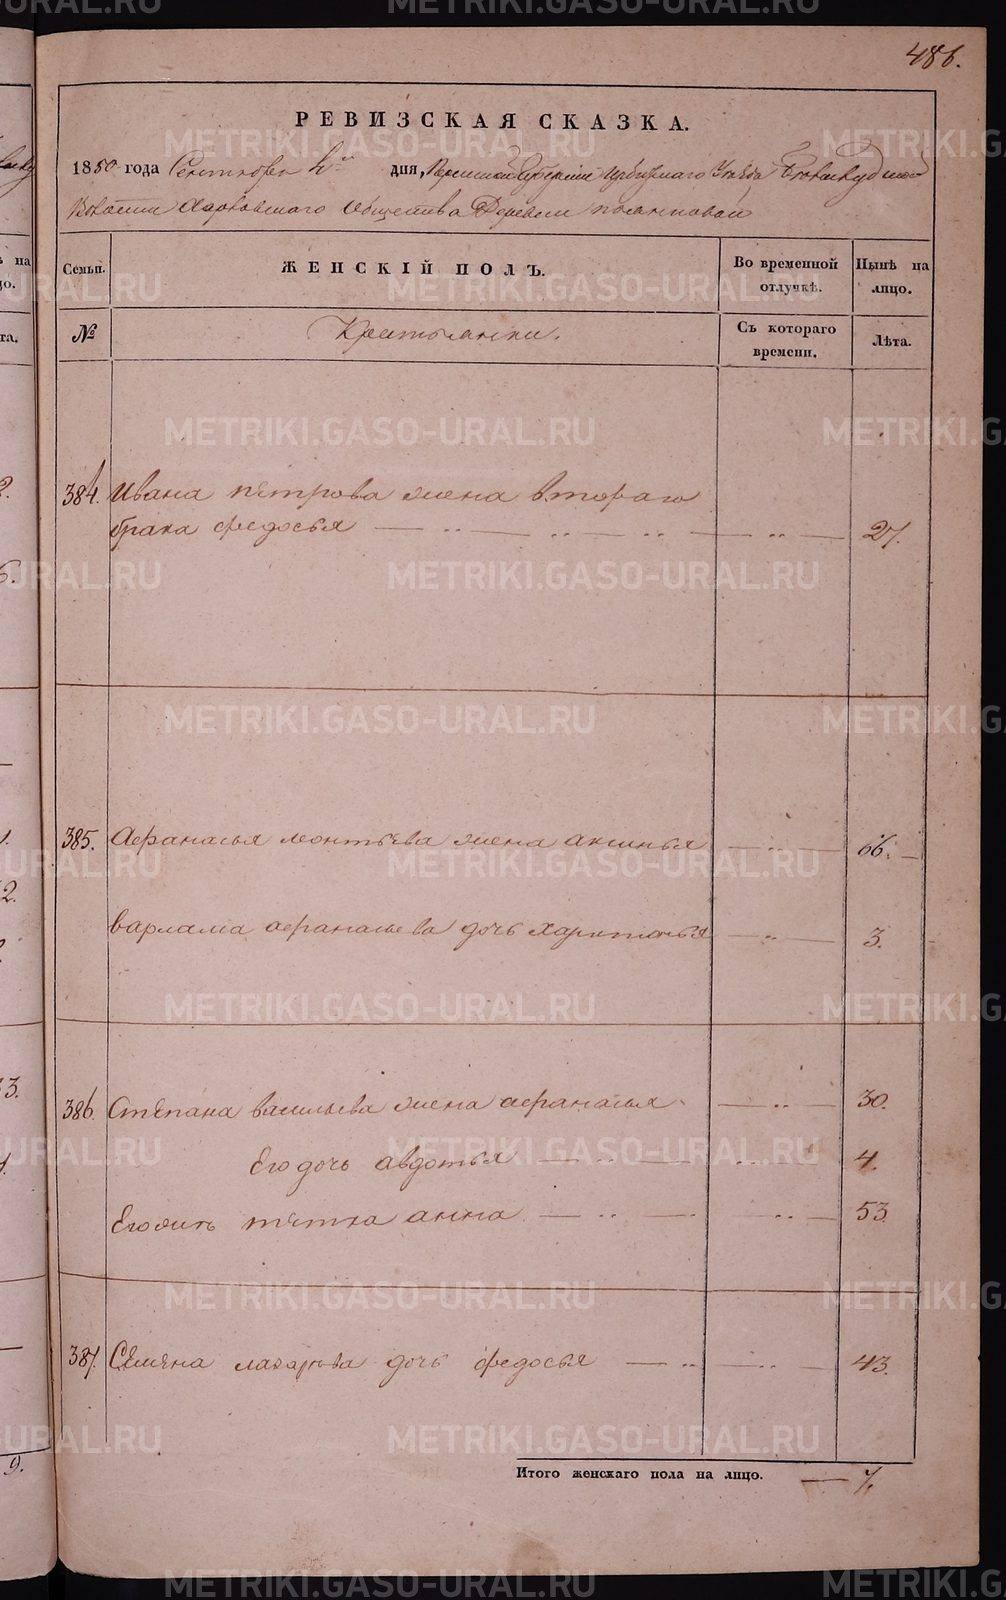 486.
РЕВИЗСКАЯ СКАЗКА.
1850 года Сентября дня, Пермской Губернии Ирбитского Уезда
Волости Харловского общества Деревни
Семьи. ЖЕНСКІЙ ПОЛЪ. Во временной отлучкѣ. Нынѣ на лицо.
№ Крестьянки. Съ котораго времени. Лѣта.
384. Ивана петрова жена втораго
брака федосья 27.
385. Афанасья леонтьева жена аксинья 66.
варлама афанасьева дочь харитонья 3.
386. Степана васильева жена афанасья 30.
Его дочь авдотья 4.
Его тетка анна 53.
387. Семена лазарева дочь федосья 43.
Итого женскаго пола на лицо. 7.
METRIKI.GASO-URAL.RU